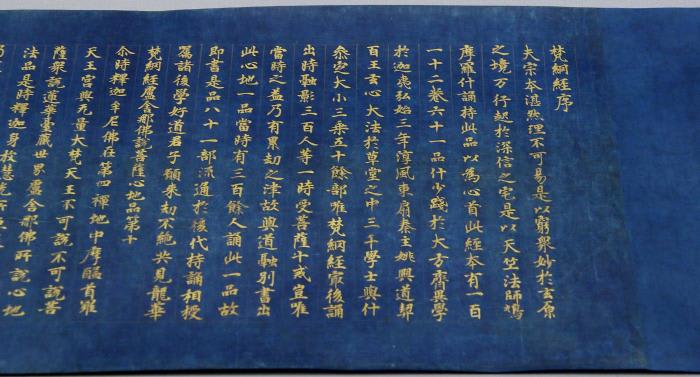 梵網經序
夫宗本湛然理不可易是以窮衆妙於玄原
之境万行起於深信之宅是以天竺法師鳩
摩羅什誦持此品以為心首此經本有一百
一十二卷六十一品什少踐於大方齊異學
於迦夷弘始三年淳風東扇秦主姚興道契
百王玄心大法於草堂之中三千學士與什
叅定大小二乘五十餘部唯梵網經最後誦
出時融影三百人等一時受菩薩十戒豈唯
當時之益乃有累劫之津故與道融別書出
此心地一品當時有三百餘人誦此一品故
即書是品八十一部流通於後代持誦相授
嘱諸後學好道君子願來劫不絶共見龍華
梵網經盧舍那佛說菩薩心地品第十
尒時釋迦牟尼佛在第四禪地中摩醯首羅
天王宮與无量大梵天王不可說不可說菩
薩衆說蓮華臺藏世界盧舍那佛所說心地
法品是時釋迦身放慧光所